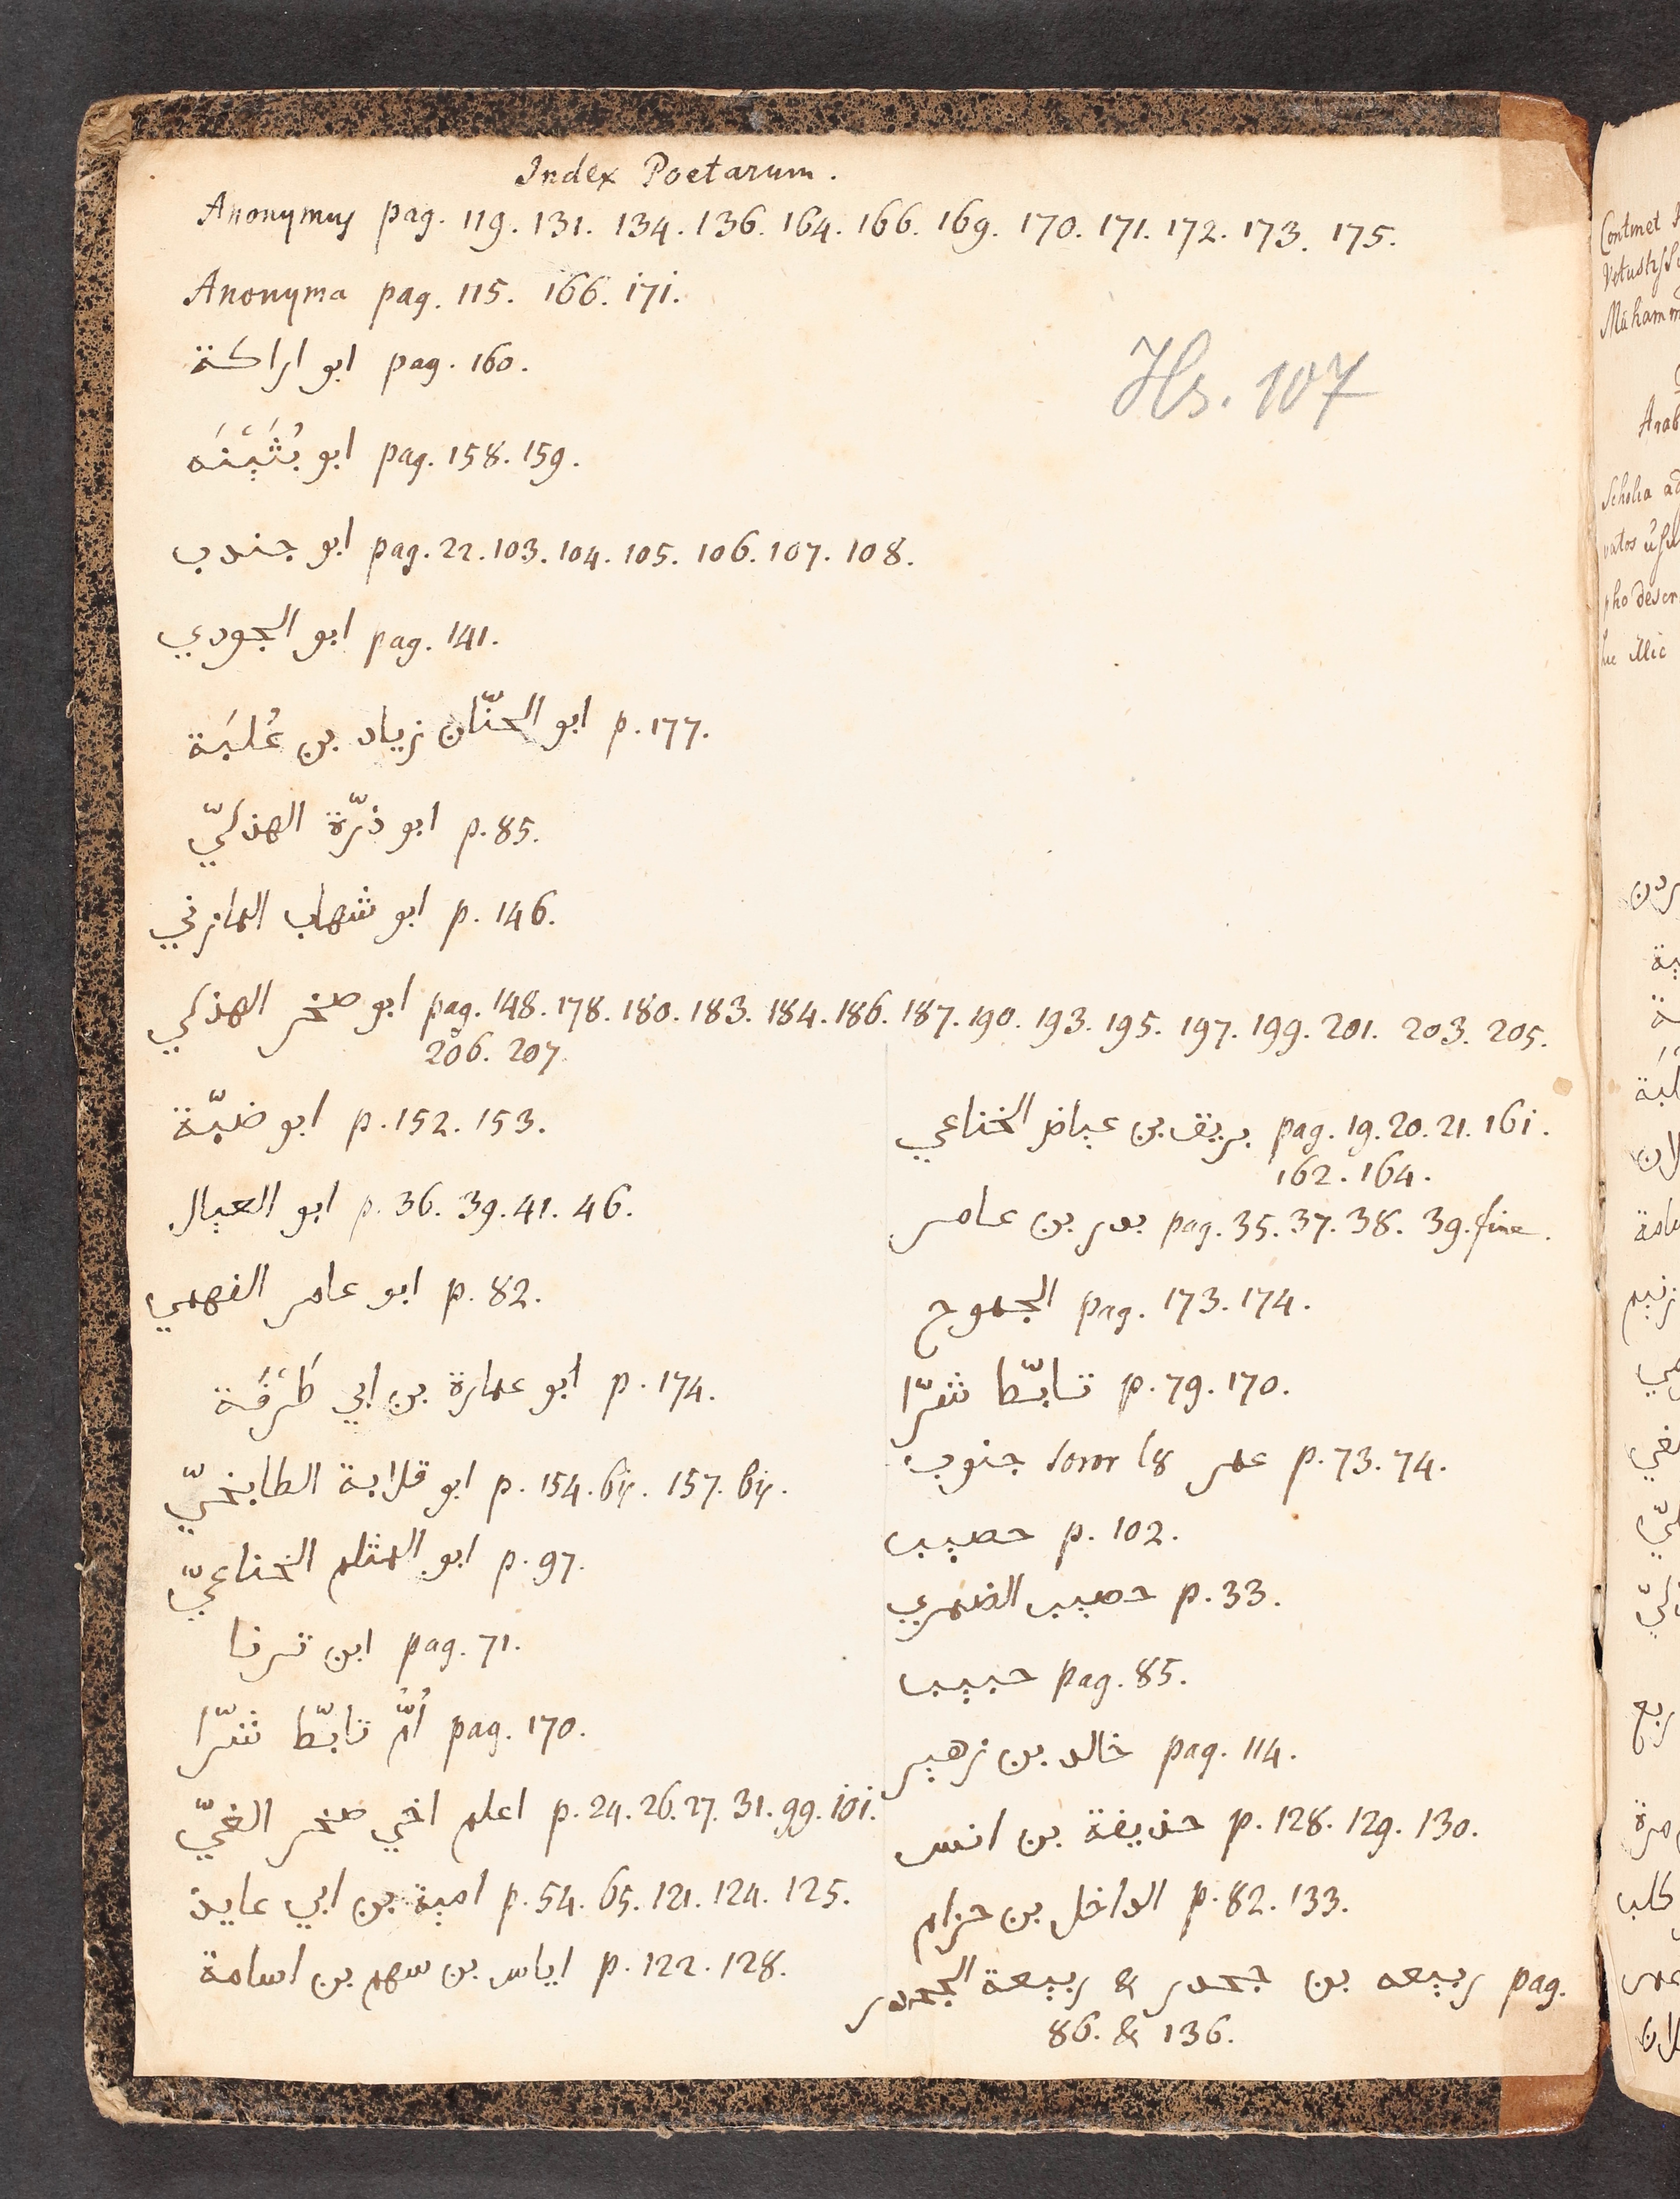 Index Poetarum.
Anonymus pag. 119. 131. 134. 136. 164. 166. 169. 170. 171. 172. 173. 175.
Anonyma pag. 115. 166. 171.
ابو اراكة pag. 160.
Hs. 107
ابو بُثَيْنَه pag. 158. 159.
ابو جندب pag. 22. 103. 104. 105. 106. 107. 108.
ابو الجودي pag. 141.
ابو الحنّان زياد بن عُلبَة p. 177.
ابو ذرّة الهذليّ p. 85.
ابو شهاب المازني p. 146.
ابو صخر الهذلي pag. 148. 178. 180. 183. 184. 186. 187. 190. 193. 195. 197. 199. 201. 203. 205.
206. 207.
ابو ضبّة p. 152. 153.
ابو العيال p. 36. 39. 41. 46.
ابو عامر الفهمي p. 82.
ابو عمارة بن ابي طَرَفَة p. 174.
ابو قلابة الطابخيّ p. 154. bis. 157. bis.
ابو المثلم الخناعيّ p. 97.
ابن ترنا pag. 71.
اُمُّ تابّطا شرّا pag. 170.
اعلم اخي صخر الغيّ p. 24. 26. 27. 31. 99. 101.
امية بن ابي عايذ p. 54. 65. 121. 124. 125.
اياس بن سهم بن اسامة p. 122. 128.
بريق بن عياض الخناعي pag. 19. 20. 21. 161.
162. 164.
بدر بن عامر pag. 35. 37. 38. 39. fine.
الجموح pag. 173. 174.
تابّطا شرّا p. 79. 170.
جنوب soror عمر p. 73. 74.
حصيب p. 102.
حصيب الضمري p. 33.
حبيب pag. 85.
خالد بن زهير pag. 114.
حذيفة بن انس p. 128. 129. 130.
الداخل بن حزام p. 82. 133.
ربيعه بن جحدر & ربيعة الجحدر pag.
86. & 136.